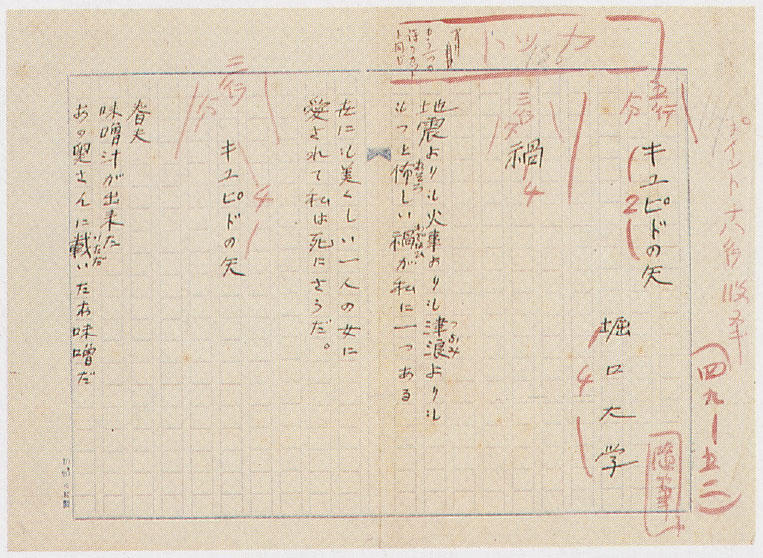 ポイント六号
(四九—五二)
随筆
五行分
キユピドの矢
2
堀口大学
4
カット
三行分
禍
4
地震よりも火事よりも津浪よりも
つなみ
もつと怖しい禍が私に一つある
世にも美くしい一人の女に
愛されて私は死にさうだ。
三行分
キユピドの矢
4
春夫
味噌汁が出来た
あの奥さんに載いたお味噌だ